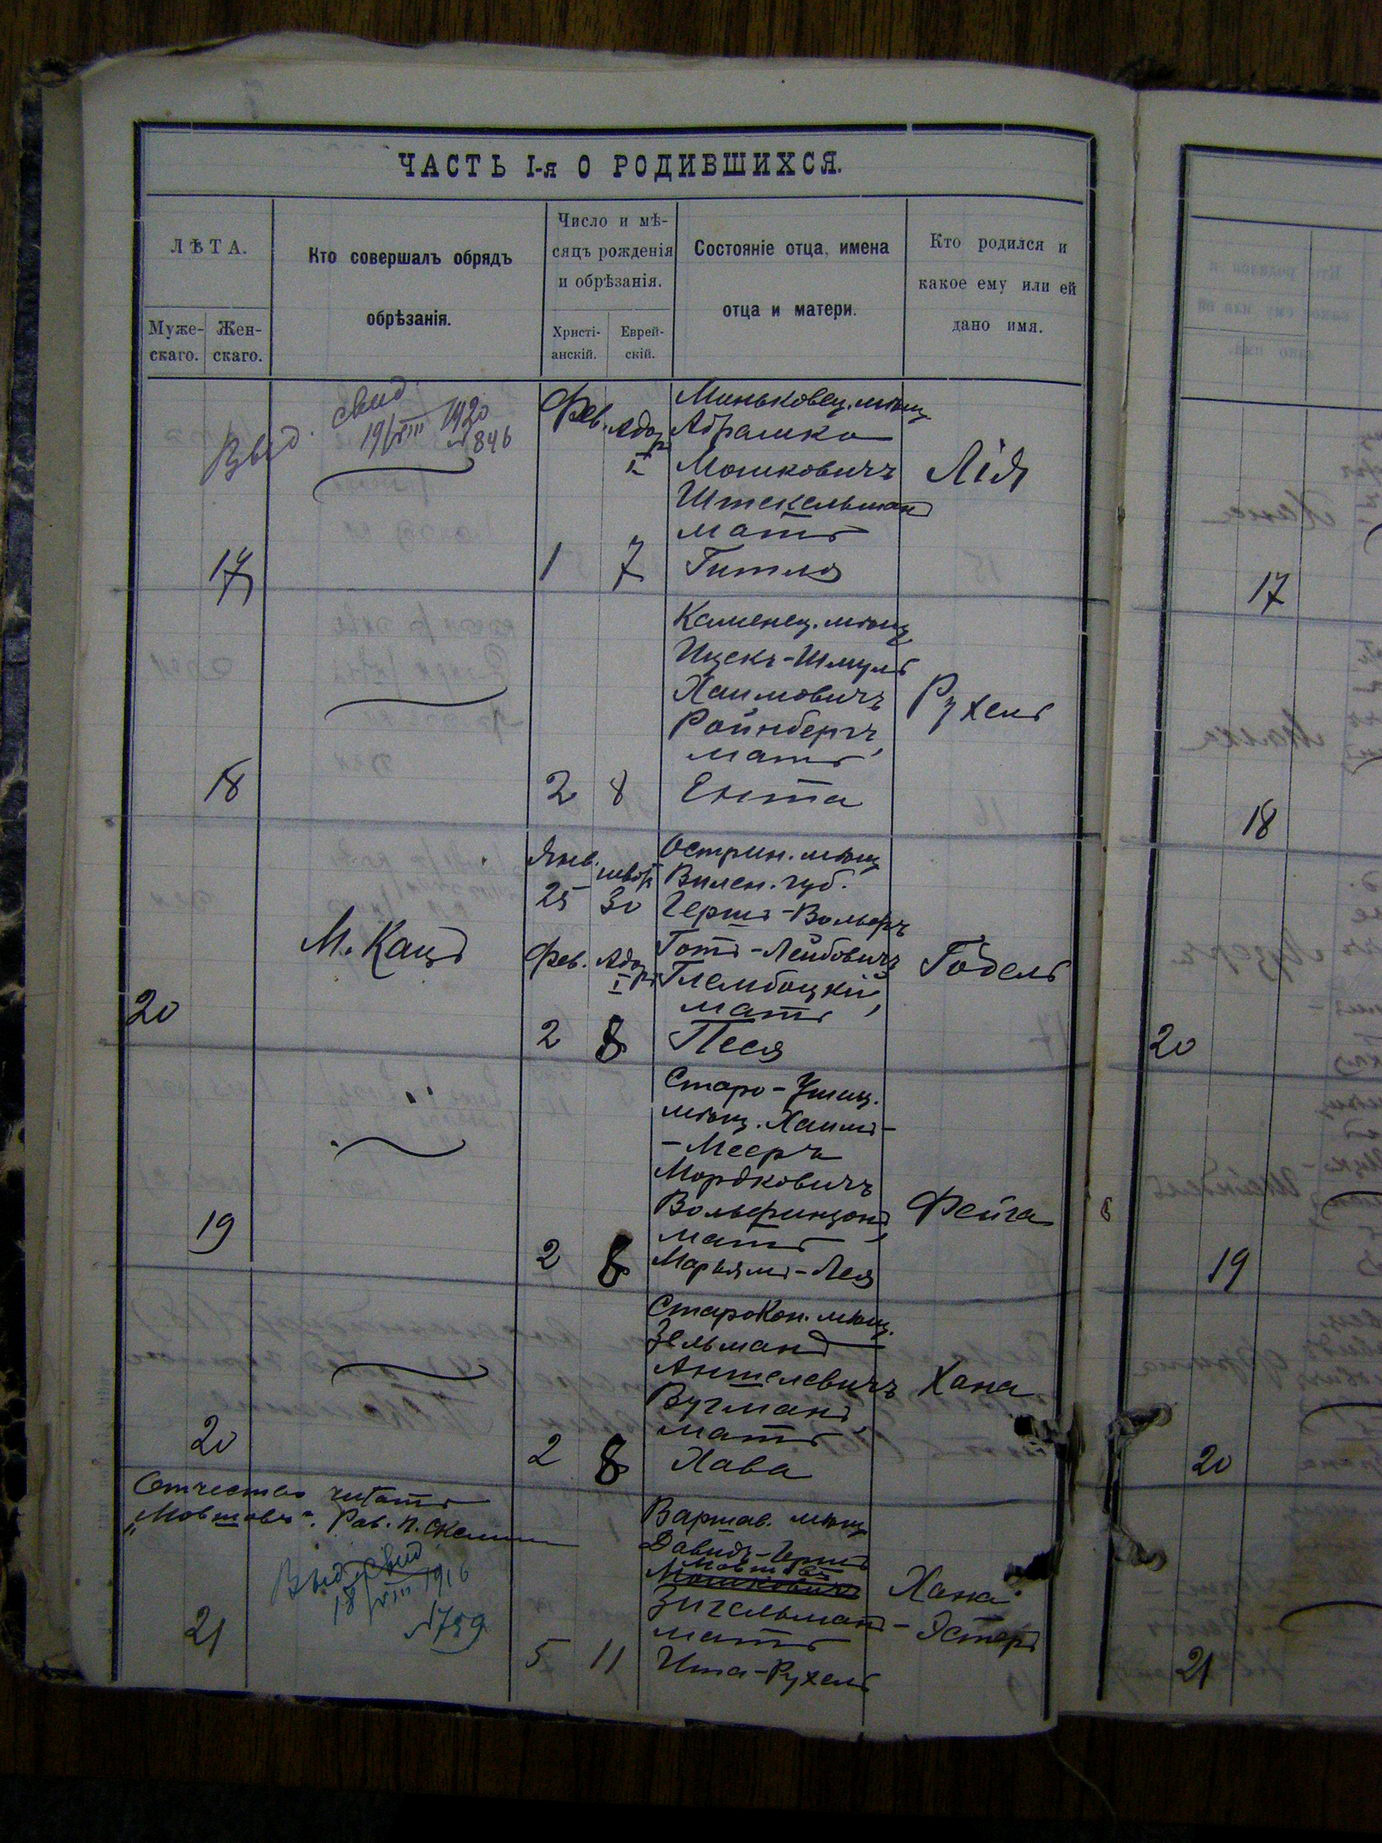 ЧАСТЬ I-я О РОДИВШИХСЯ.
ЛѢТА.
Муже-
скаго.
Жен-
скаго.
Кто совершалъ обрядъ
обрѣзанія.
Число и мѣ-
сяцъ рожденія
и обрѣзанія.
Христі-
анскій.
Еврей-
скій.
Состояніе отца, имена
отца и матери.
Кто родился и
какое ему или ей
дано имя.
Выд. свид.
19/VIII 1920
№ 846
17
Фев.
Адар
I
1
7
Миньковец. мѣщ.
Абрамко
Мошковичъ
Штекельман
мать
Гитля
Лія
18
2
8
Каменец. мѣщ.
Ицекъ-Шмуль
Хаимовичъ
Ройнбергъ,
мать
Ента
Рухель
20
М. Кацъ
Янв.
25
30
Фев.
Адар
I
2
8
Острин. мѣщ
Вилен. губ.
Гершъ-Вольфъ
Готъ-Лейбовичъ
Глембоцкій,
мать
Песя
Годель
19
2
8
Старо-Ушиц.
мѣщ. Хаимъ-
-Мееръ
Мордковичъ
мать
Марьямъ-Лея
Фейга
20
2
8
СтароКон. мѣщ.
Зельманъ
Аншелевичъ
Вугманъ,
мать
Хава
Хана
Отчество читать
„Мовшовъ“. Рав. П.
Выд. свид.
18/VIII 1916
№ 759
21
5
11
Варшав. мѣщ
Давидъ-Гершъ
Мовшовъ
Мошковичъ
Зигельманъ
мать
Ита-Рухель
Хана-
-Эстеръ
17
18
20
19
20
21